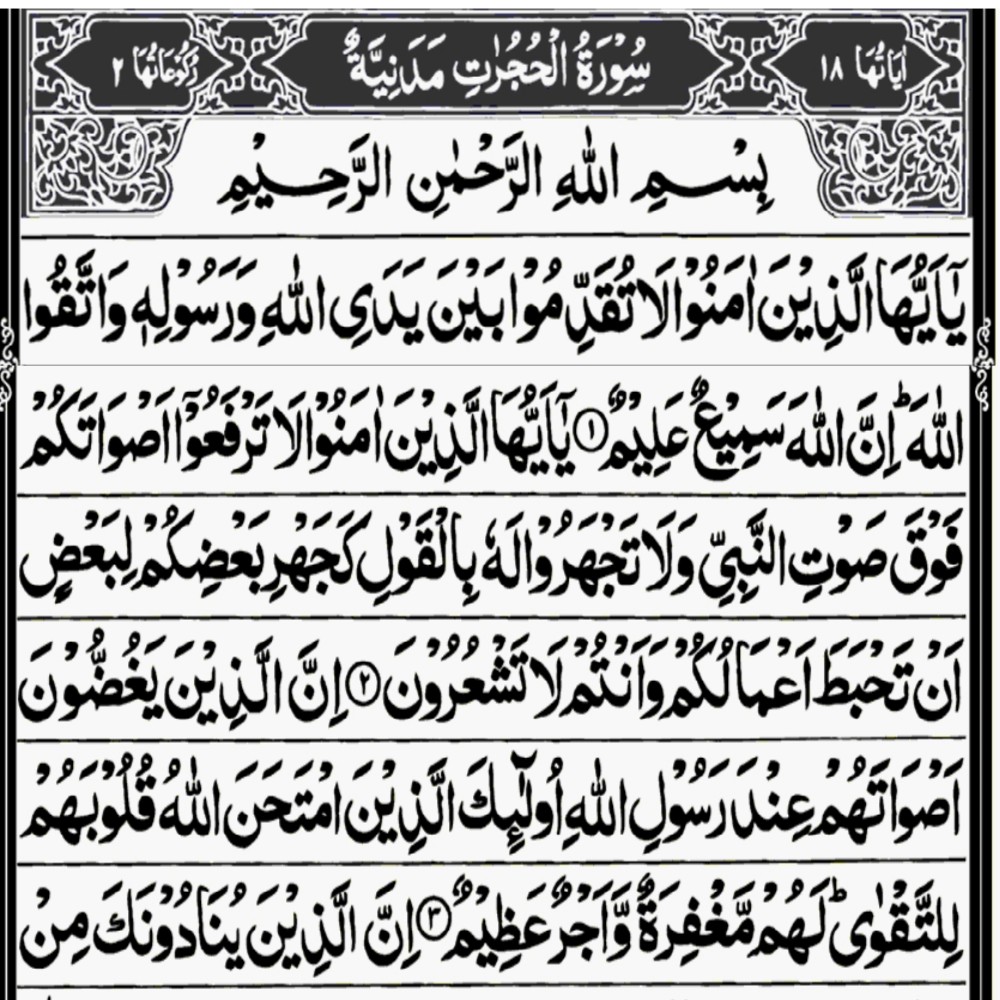 اٰيَاتُهَا ١٨ سُوْرَةُ الْحُجُرٰتِ مَدَنِيَّةٌ رُكُوْعَاتُهَا ٢
بِسْمِ اللهِ الرَّحْمٰنِ الرَّحِيْمِ
يٰۤاَيُّهَا الَّذِيْنَ اٰمَنُوْا لَا تُقَدِّمُوْا بَيْنَ يَدَيِ اللهِ وَرَسُوْلِهٖ وَاتَّقُوا
اللهَ ؕ اِنَّ اللهَ سَمِيْعٌ عَلِيْمٌ ① يٰۤاَيُّهَا الَّذِيْنَ اٰمَنُوْا لَا تَرْفَعُوْۤا اَصْوَاتَكُمْ
فَوْقَ صَوْتِ النَّبِيِّ وَلَا تَجْهَرُوْا لَهٗ بِالْقَوْلِ كَجَهْرِ بَعْضِكُمْ لِبَعْضٍ
اَنْ تَحْبَطَ اَعْمَالُكُمْ وَاَنْتُمْ لَا تَشْعُرُوْنَ ② اِنَّ الَّذِيْنَ يَغُضُّوْنَ
اَصْوَاتَهُمْ عِنْدَ رَسُوْلِ اللهِ اُولٰٓئِكَ الَّذِيْنَ امْتَحَنَ اللهُ قُلُوْبَهُمْ
لِلتَّقْوٰى ؕ لَهُمْ مَّغْفِرَةٌ وَّاَجْرٌ عَظِيْمٌ ③ اِنَّ الَّذِيْنَ يُنَادُوْنَكَ مِنْ